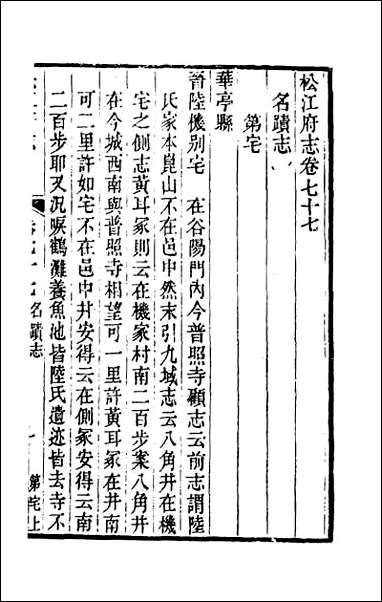 松江府志卷七十七
名蹟志
第宅
華亭縣
晉陸機别宅 在谷陽門內今普照寺顧志云前志謂陸
氏家本崑山不在邑中然末引九域志云八角井在機
宅之側志黃耳冢則云在機家村南二百步案八角井
在今城西南與普照寺相望可一里許黃耳冢在井南
可二里許如宅不在邑中井安得云在側冢安得云南
二百步耶又況唳鶴灘養魚池皆陸氏遺迹皆去寺不
名蹟志
一
第宅上